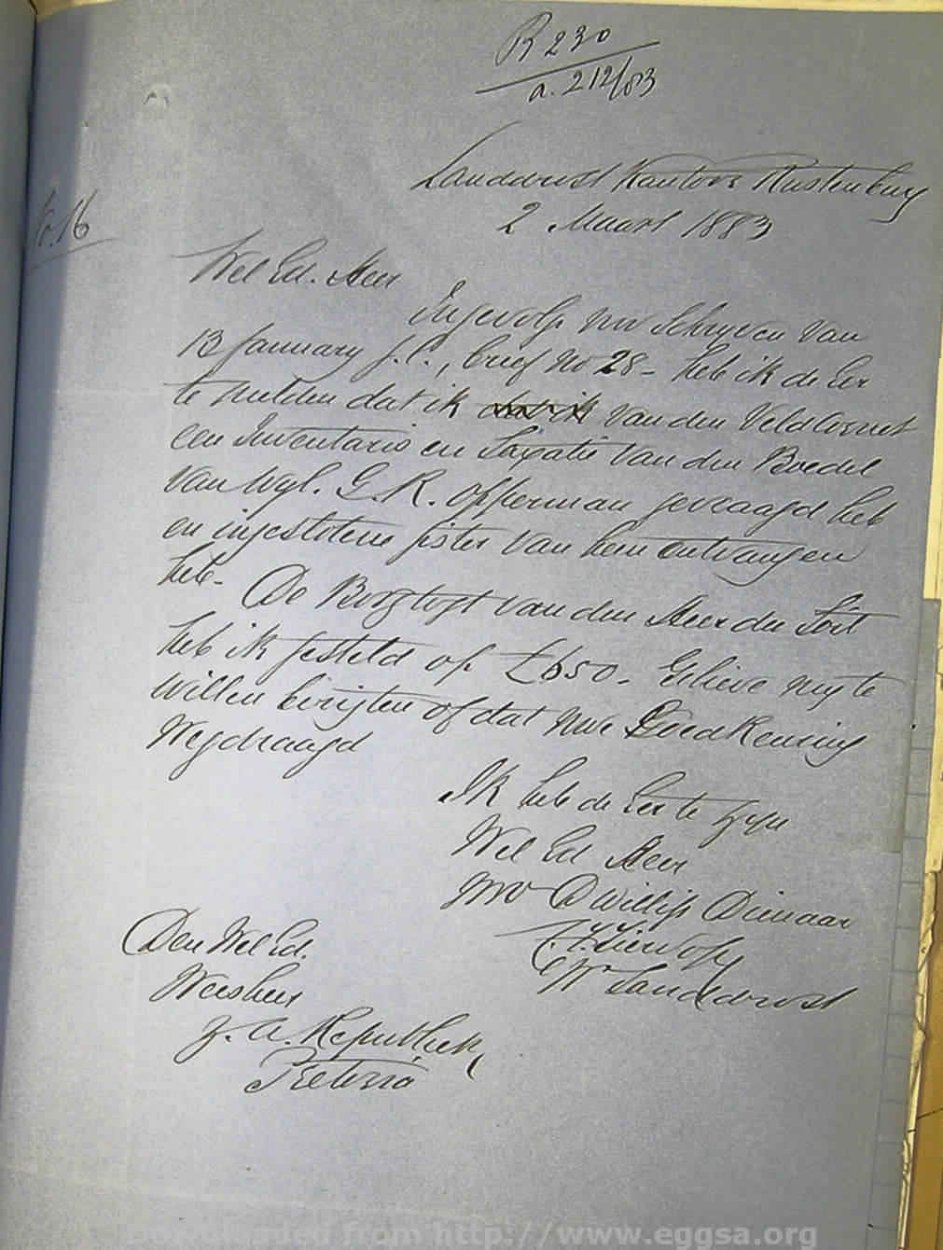 R 230
a. 212/83
Landdrost Kantoor Rustenburg
2 Maart 1883
No. 16
Wel Ed. Heer
Ingevolge uw schryven van
13 January j.l., brief No 28 - heb ik de Eer
te melden dat ik van den Veldcornet
een Inventaris en Taxatie van den Boedel
van wyl. G. R. Opperman gevraagd heb
en ingesloten gister van hem ontvangen
heb. De Borgtogt van den Heer du Toit
heb ik gesteld op £650. Gelieve my te
willen berigten of dat uwe Goedkeuring
wegdraagd
Ik heb de Eer te zyn
Wel Ed Heer
uw Dwillige Dienaar
Wr Landdrost
Den Wel Ed.
Weesheer
Z. A. Republiek,
Pretoria
Downloaded from http://www.eggsa.org